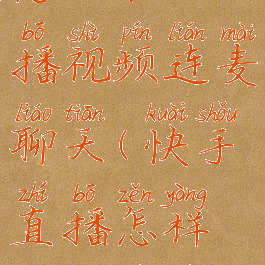 bō shì pín lián mài
播视频连麦
liáo tiān kuài shǒu
聊天(快手
zhí bō zěn yàng
直播怎样